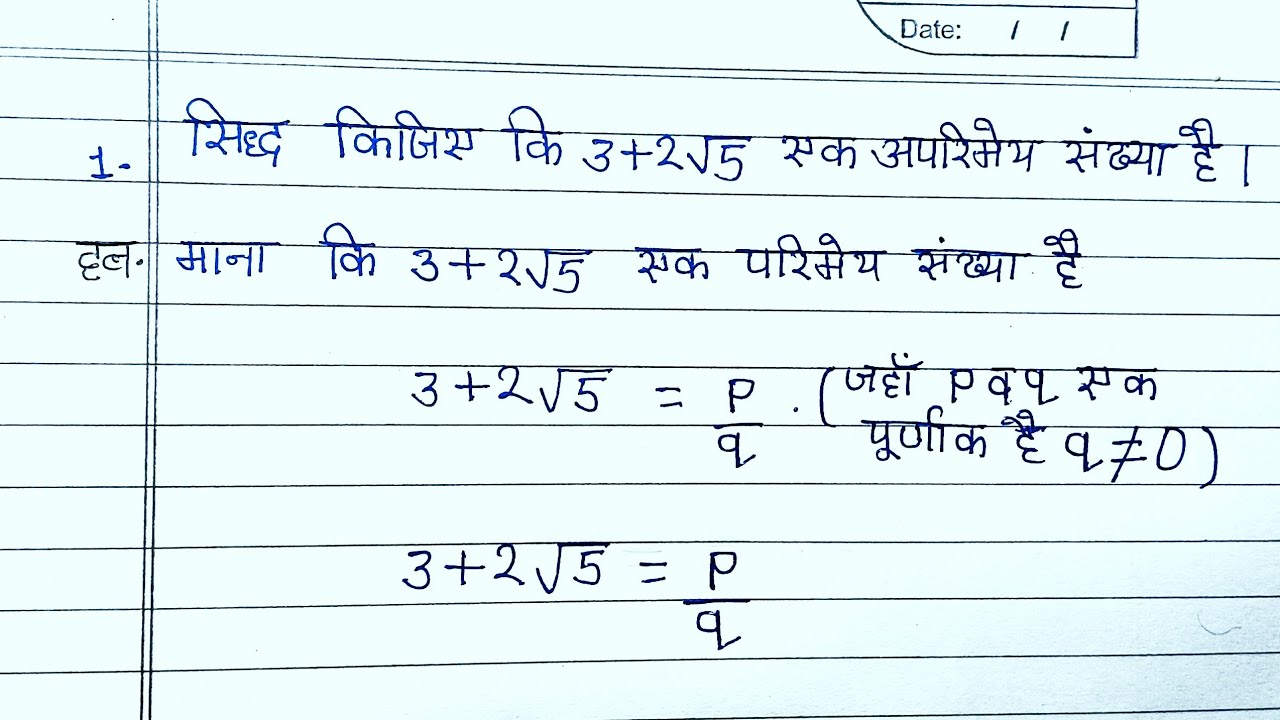 Date: / /
1. सिद्ध किजिए कि 3+2√5 एक अपरिमेय संख्या है।
हल. माना कि 3+2√5 एक परिमेय संख्या है
3+2√5 = p/q . (जहाँ p व q एक
पूर्णांक है q≠0)
3+2√5 = p/q